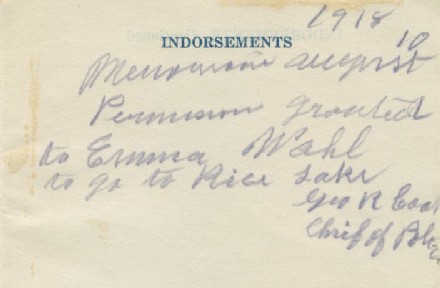 1918
INDORSEMENTS
10
Menomonie August
Permission granted
to Emma Wahl
to go to Rice Lake
Geo R
Chief of